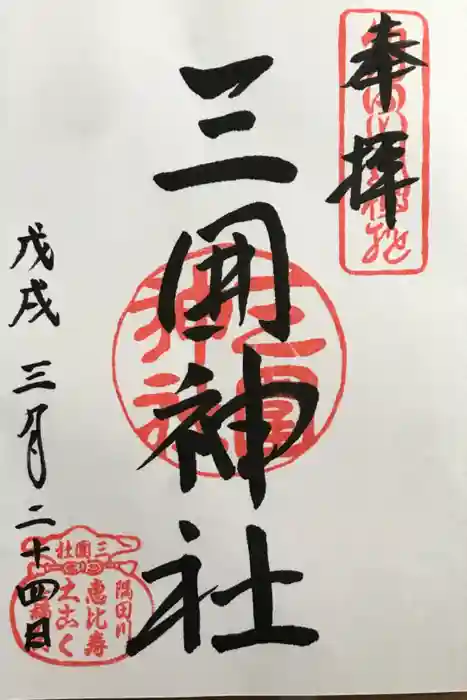 奉拝
三囲神社
戊戌 三月二十四日
三囲神社
三囲社
隅田川
恵比寿
大こく